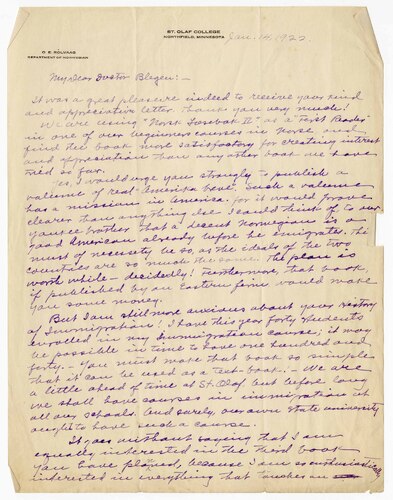 ST. OLAF COLLEGE
NORTHFIELD, MINNESOTA
Jan. 14, 1922
O. E. ROLVAAG
DEPARTMENT OF NORWEGIAN
My Dear Doctor Blegen:—
It was a great pleasure indeed to receive your kind
and appreciative letter. Thank you very much!
We are using "Norsk Lesebok II" as a "First Reader"
in one of our beginners courses in Norse and
find the book more satisfactory for creating interest
and appreciation than any other book we have
tried so far.
Yes, I would urge you strongly to publish a
volume of real "Amerika bøve". Such a volume
has a mission in America, for it would prove
clearer than anything else I could think of to our
yankee brother that a decent Norwegian is a
good American already before he emigrates. This
must of necessity be so, as the ideals of the two
countries are so much the same. The plan is
worth while — decidedly! Furthermore, that book,
if published by an Eastern firm would make
you some money.
But I am still more anxious about your History
of Immigration! I have this year forty students
enrolled in my Immigration course; it may
be possible in time to have one hundred and
forty. — You must make that book so simple
that it can be used as a text-book. — We are
a little ahead of time at St. Olaf but before long
we shall have courses in immigration at
all our schools. And surely, our own State university
ought to have such a course.
It goes without saying that I am
equally interested in the third book
you have planned, because I am so enthusiastically
interested in everything that touches on